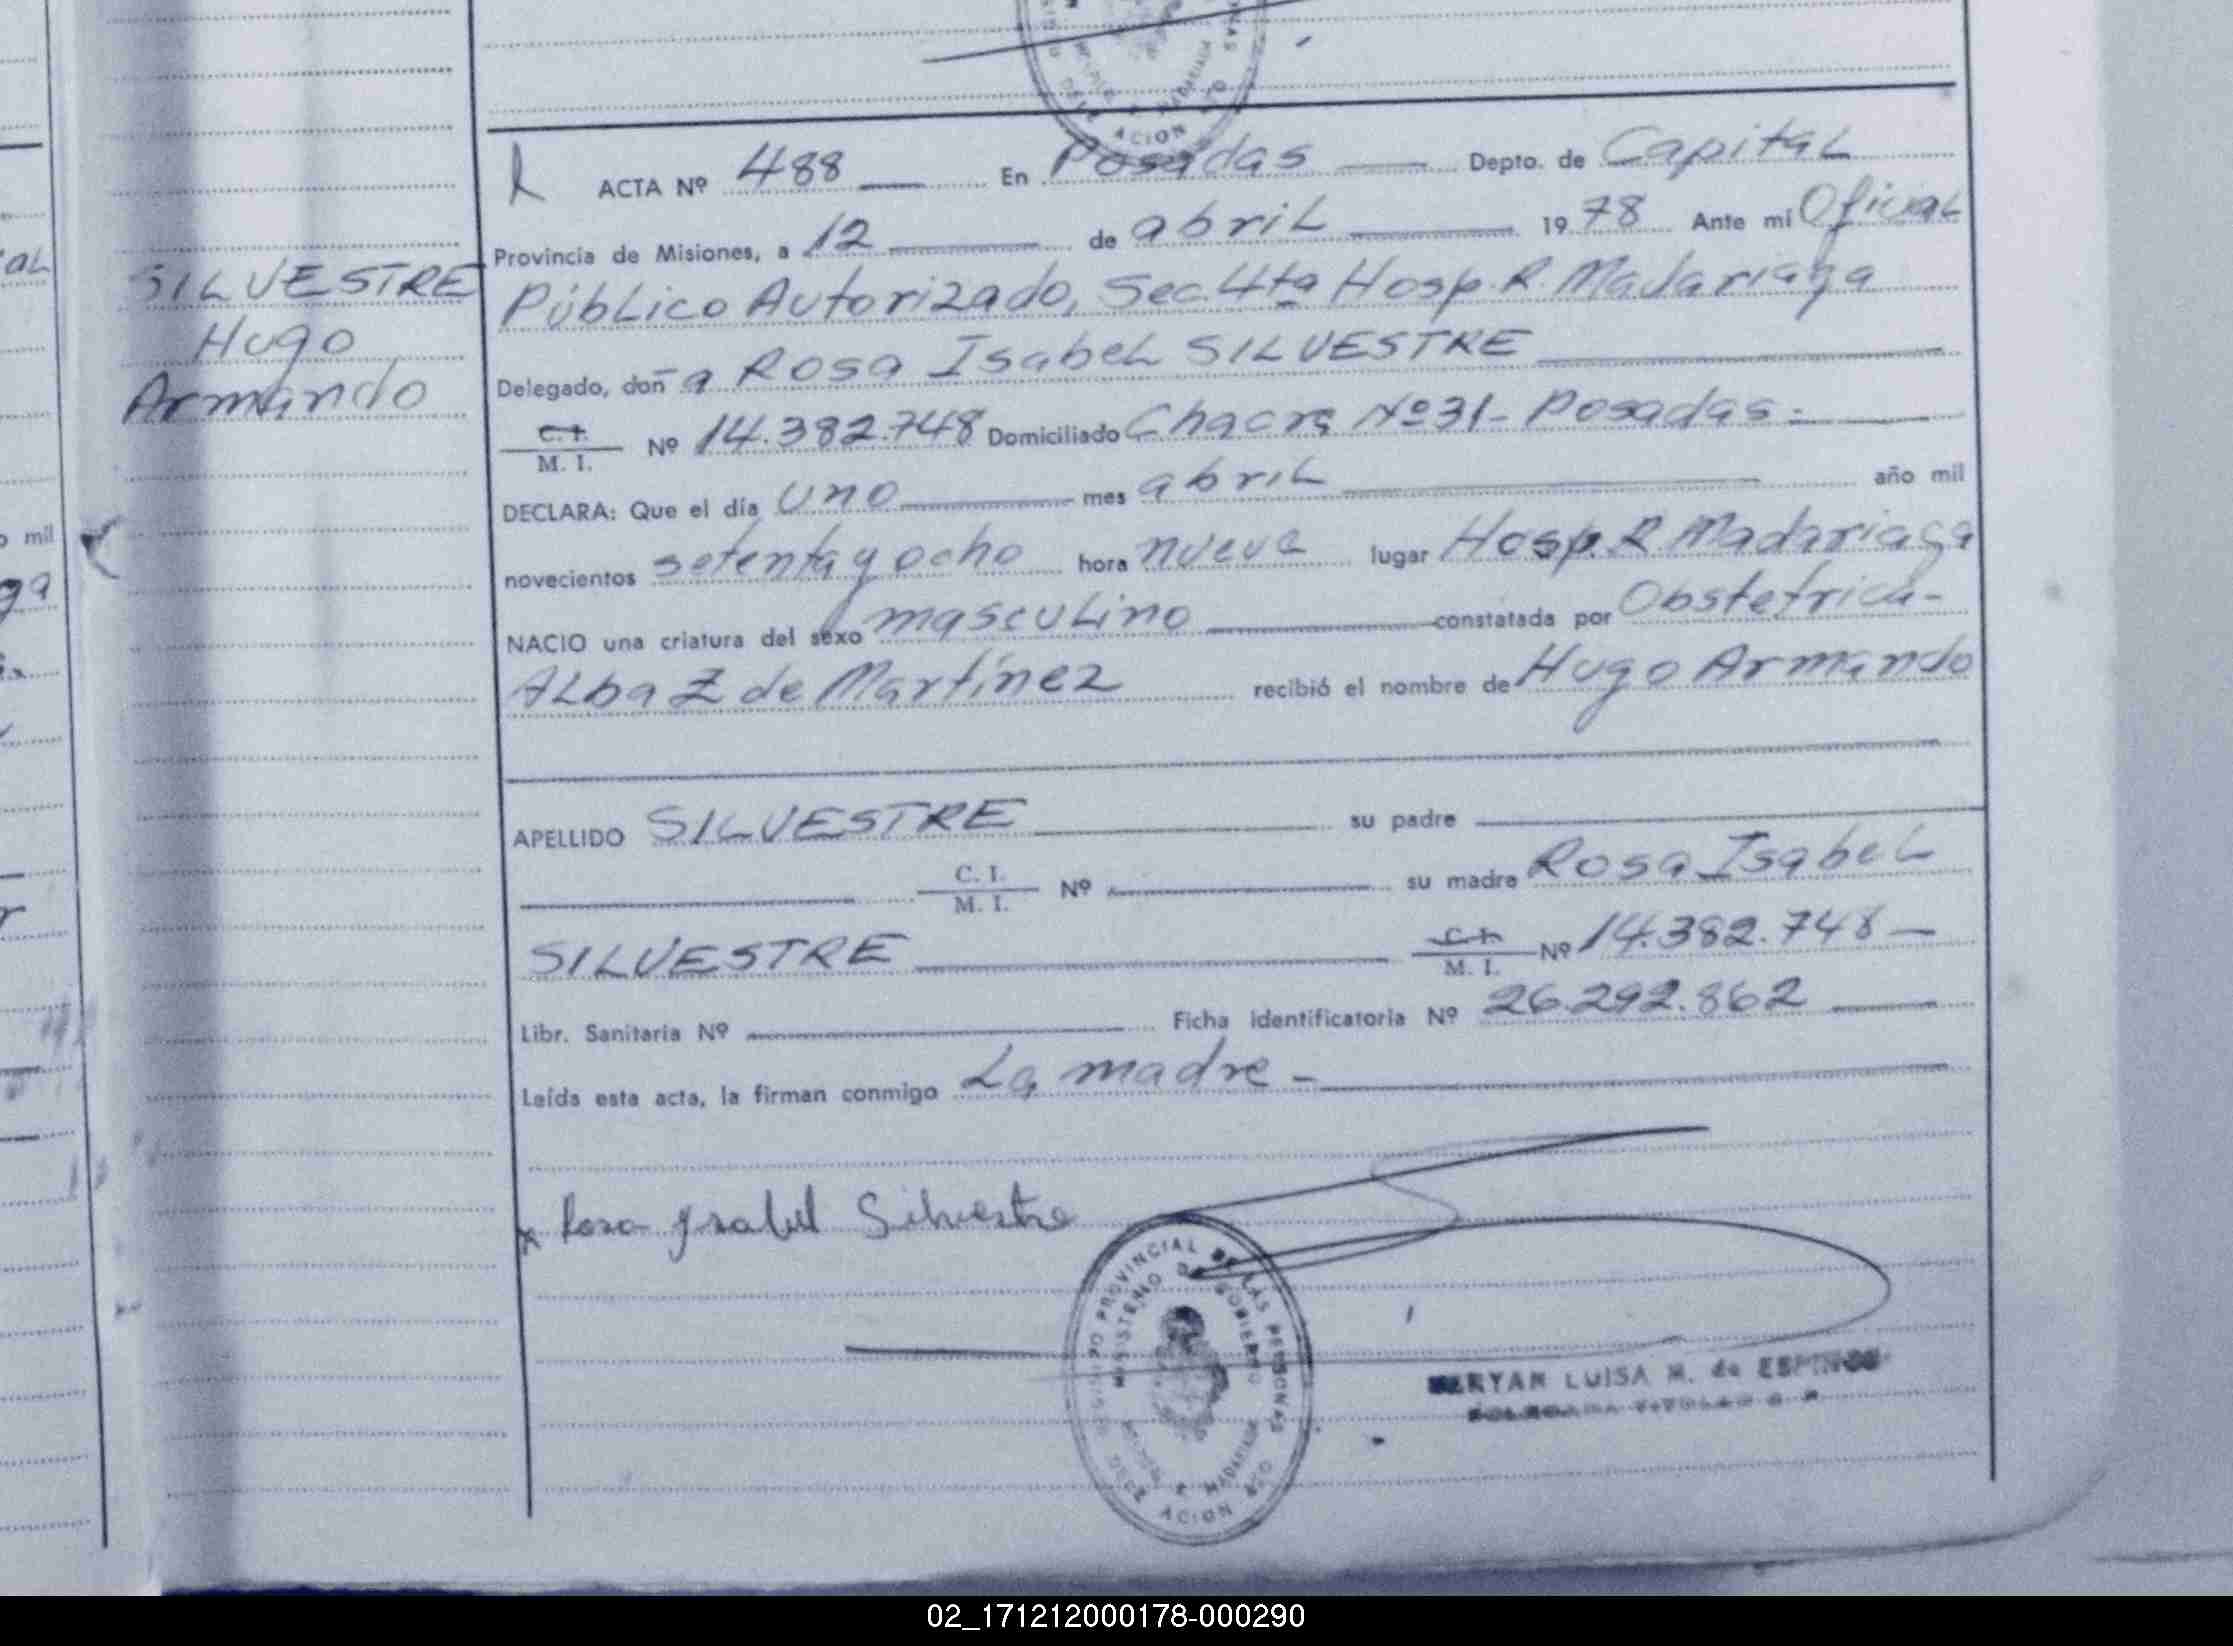 SILVESTRE
Hugo
Armando
ACTA Nº 488 En Posadas Depto. de Capital
Provincia de Misiones, a 12 de abril 1978 Ante mí Oficial
Público Autorizado, Sec. 4ta Hosp. R. Madariaga
Delegado, doña Rosa Isabel SILVESTRE
C. I.
M. I. Nº 14.382.748 Domiciliado Chacra Nº 31 - Posadas.-
DECLARA: Que el día uno mes abril año mil
novecientos setenta y ocho hora nueve lugar Hosp. R. Madariaga
NACIO una criatura del sexo masculino constatada por Obstetrica-
Alba Z de Martínez recibió el nombre de Hugo Armando
APELLIDO SILVESTRE su padre
C. I.
M. I. Nº su madre Rosa Isabel
SILVESTRE C. I.
M. I. Nº 14.382.748 -
Libr. Sanitaria Nº Ficha identificatoria Nº 26.292.862
Leída esta acta, la firman conmigo La madre -
x Rosa Ysabel Silvestre
PROVINCIAL DE LAS PERSONAS
MINISTERIO DE GOBIERNO
MADARIAGA
LUISA M. de ESPINOS
02_171212000178-000290